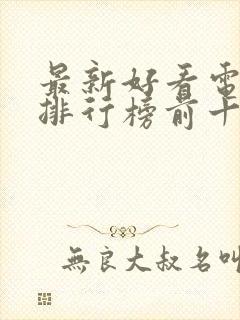 最新好看電
排行榜前十
無良大叔名叫